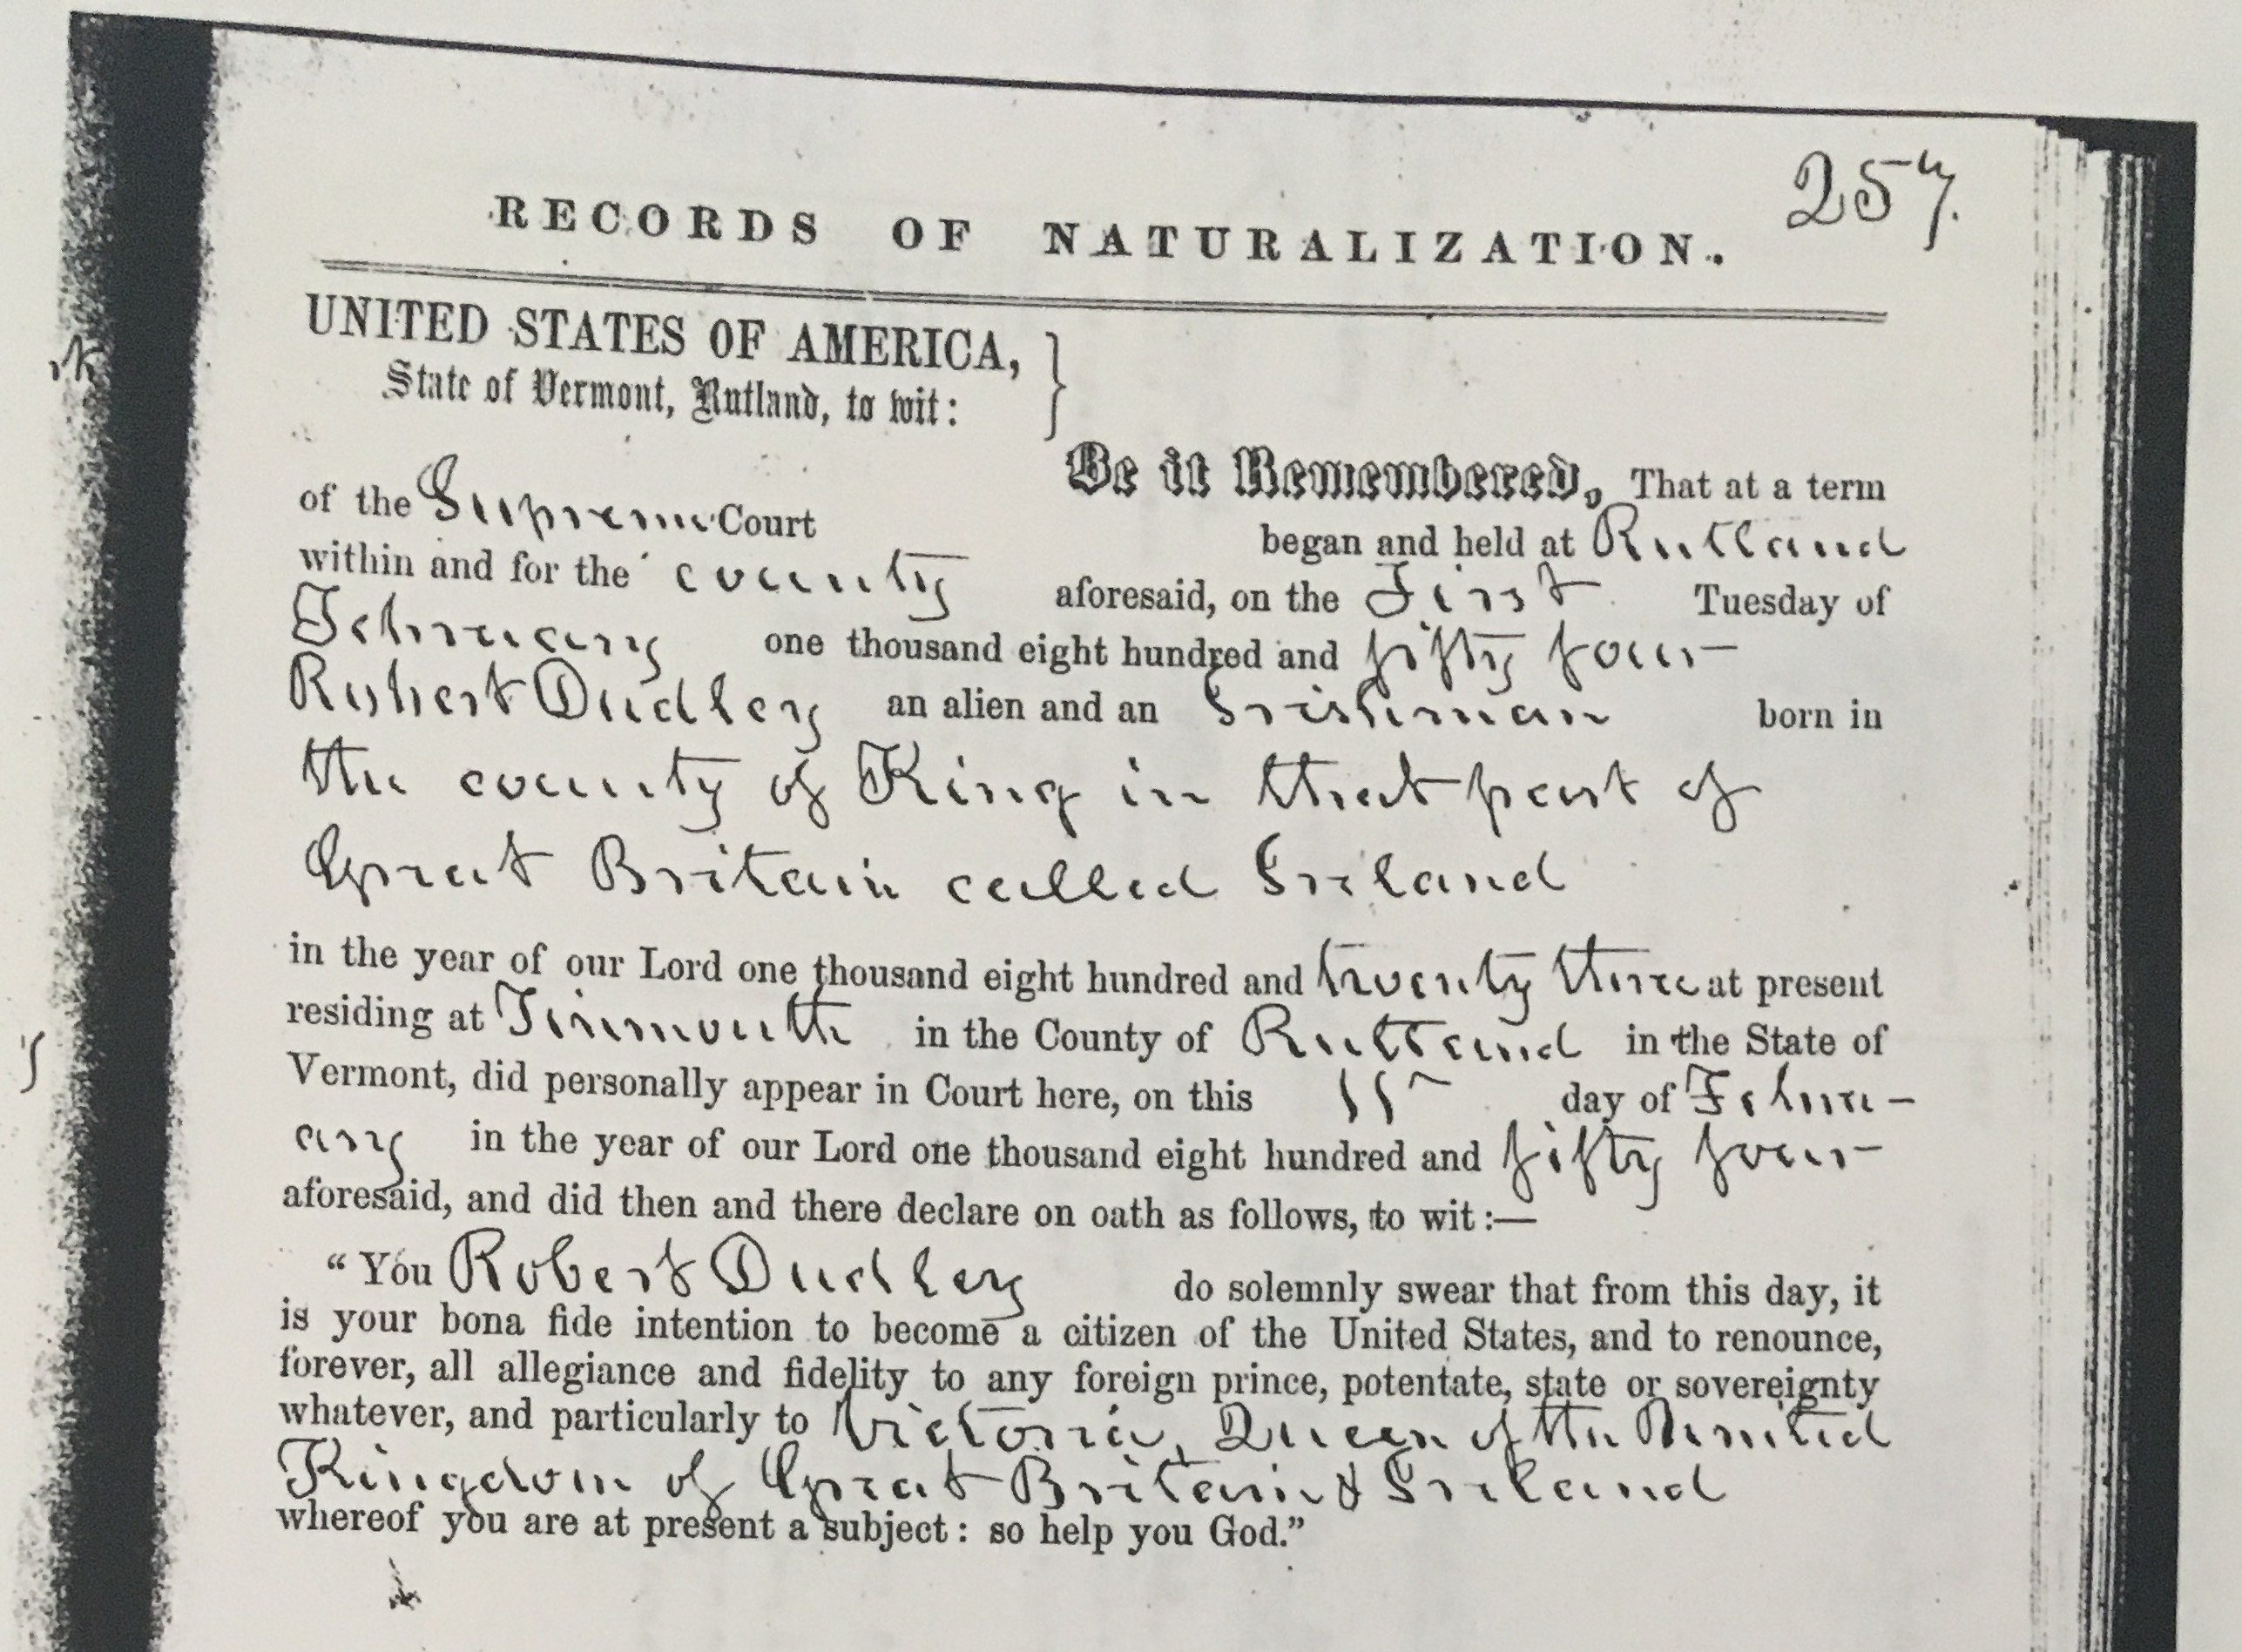 257.
RECORDS OF NATURALIZATION.
UNITED STATES OF AMERICA,
State of Vermont, Rutland, to wit: }
Be it Remembered, That at a term
of the Supreme Court began and held at Rutland
within and for the county aforesaid, on the First Tuesday of
February one thousand eight hundred and fifty four
Robert Dudley an alien and an Irishman born in
the county of King in that part of
Great Britain called Ireland
in the year of our Lord one thousand eight hundred and twenty three at present
residing at Tinmouth in the County of Rutland in the State of
Vermont, did personally appear in Court here, on this day of Febru-
ary in the year of our Lord one thousand eight hundred and fifty four
aforesaid, and did then and there declare on oath as follows, to wit:—
"You Robert Dudley do solemnly swear that from this day, it
is your bona fide intention to become a citizen of the United States, and to renounce,
forever, all allegiance and fidelity to any foreign prince, potentate, state or sovereignty
whatever, and particularly to Victoria, Queen of the United
Kingdom of Great Britain & Ireland
whereof you are at present a subject: so help you God."